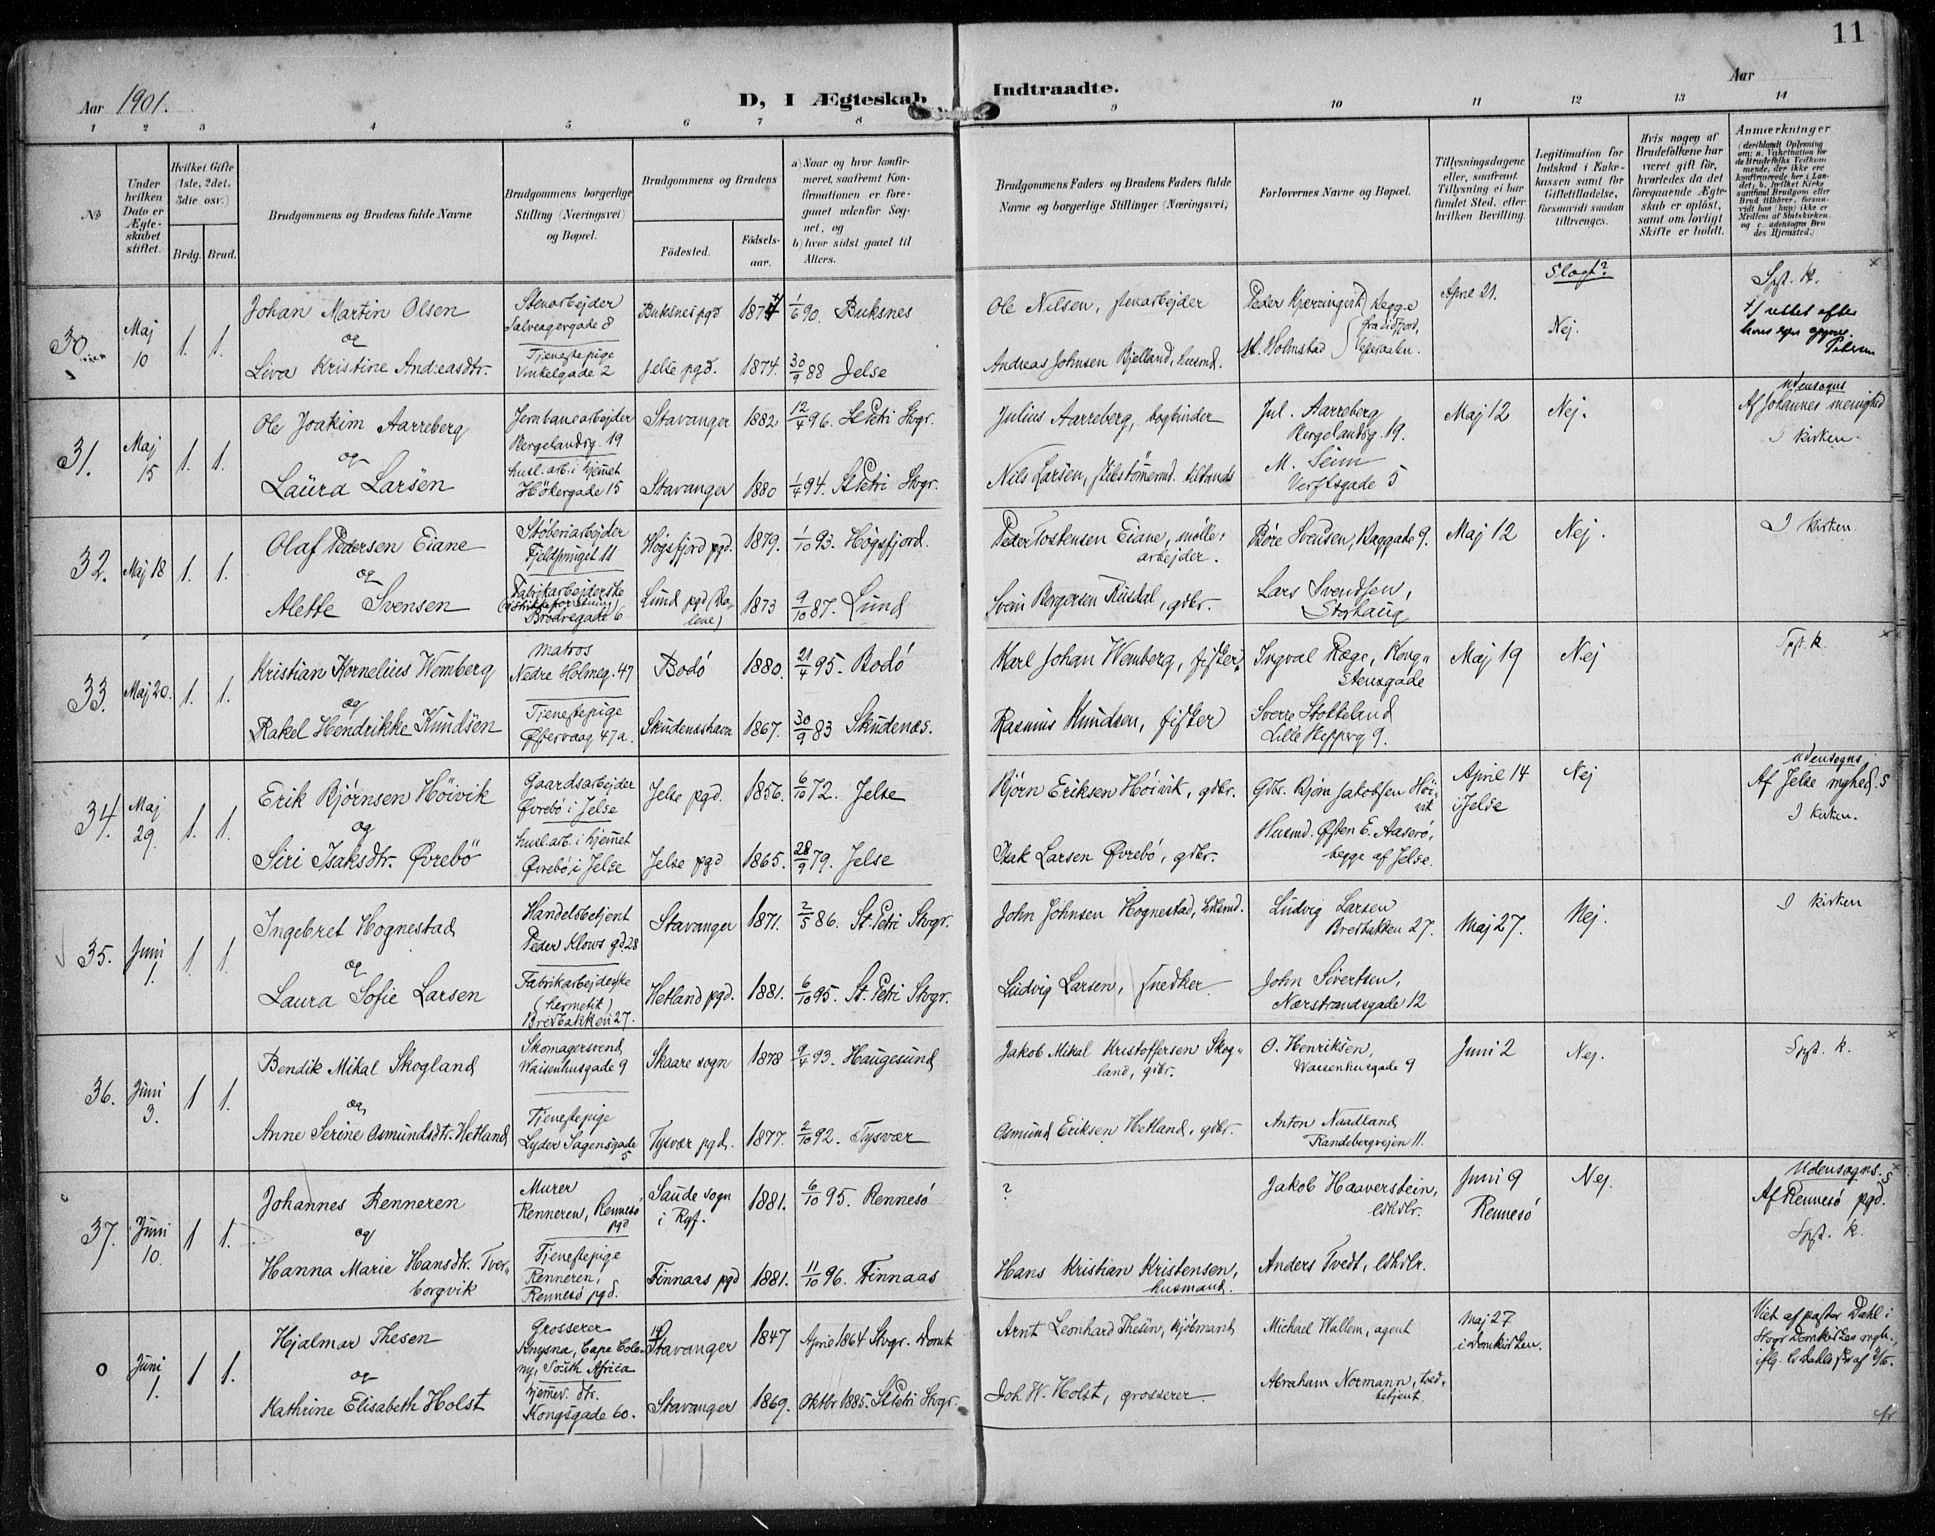 11
Aar 1901.
D, I Ægteskab
Indtraadte.
Aar
1 2 3 4 5 6 7 8 9 10 11 12 13 14
No
Under hvilken Dato er Ægteskabet stiftet.
Hvilket Gifte (1ste, 2det, 3die osv.)
Brdg. Brud.
Brudgommens og Brudens fulde Navne
Brudgommens borgerlige Stilling (Næringsvei) og Bopæl.
Brudgommens og Brudens
Födested.
Födselsaar.
a) Naar og hvor konfirmeret, saafremt Konfirmationen er foregaaet udenfor Sognet, og
b) hvor sidst gaaet til Alters.
Brudgommens Faders og Brudens Faders fulde Navne og borgerlige Stillinger (Næringsvei).
Forlovernes Navne og Bopæl.
Tillysningsdagene eller, saafremt Tillysning ei har fundet Sted, efter hvilken Bevilling.
Legitimation for Indskud i Enkekassen samt for Giftetilladelse, forsaavidt saadan tiltrænges.
Hvis nogen af Brudefolkene har været gift før, hvorledes da det foregaaende Ægteskab er opløst, samt om lovligt Skifte er holdt.
Anmærkninger
30 Maj 10 1. 1.
Johan Martin Olsen
og
Liva Kristine Andreasdtr.
Stenarbejder
Salveagergade 8
Tjenestepige
Vinkelgade 2
Buksnes pgd
Jelse pgd.
1874
1874.
1/6 90. Buksnes
30/9 88 Jelse
Ole Nilsen, stenarbejder
Andreas Johnsen Bjelland, husmd.
Peder Kjærringvik
M. Holmstad
begge fra Eidsfjord, Vesteraalen.
April 21.
Slagt?
Nej.
Spst. k.
+/ rettet efter hans egen opgave.
31. Maj 15 1. 1.
Ole Joakim Aarreberg
og
Laura Larsen
Jernbanearbejder
Bergelandsg. 19
husl. arb. i hjemmet
Hökergade 15
Stavanger
Stavanger
1882
1880
12/4 96. St Petri Stvgr.
1/4 94. St Petri Stvgr.
Julius Aarreberg, bogbinder
Nils Larsen,
Jul. Aarreberg
Bergelandsg. 19.
M. Seim
Verftsgade 5
Maj 12
Nej.
Udensogns
Af Johannes menighed
I kirken.
32. Maj 18 1. 1.
Olaf Pedersen Eiane
og
Alette Svensen
Støberiarbejder
11
Fabrikarbejderske
Brødregade 6
Høgsfjord pgd.
Lund pgd (Dalene)
1879.
1873
1/10 93. Høgsfjord.
9/10 87. Lund
Peder Tostensen Eiane, møllearbejder.
Svein Bergersen Rusdal, gdbr.
Børe Svendsen, Baggade 9.
Lars Svendsen,
Storhaug
Maj 12
Nej.
I kirken.
33. Maj 20. 1. 1.
Kristian Kornelius Wemberg
og
Rakel Hendrikke Knudsen
Matros
Nedre Holmeg. 47
Tjenestepige
Østervaag 47a.
Bodö
Skudeneshavn
1880.
1867.
21/4 95. Bodö
30/9 83 Skudenæs.
Karl Johan Wemberg, fisker
Rasmus Knudsen, fisker
Ingval Ræge, Kongstensgade
Sverre Stokkeland
Lille Skipperg 9.
Maj 19
Nej
Spst. k.
34. Maj 29. 1. 1.
Erik Bjørnsen Høivik
og
Siri Isaksdtr. Øvrebö
Gaardsarbejder
Øvrebö i Jelse
husl. arb. i hjemmet
Øvrebö i Jelse
Jelse pgd.
Jelse pgd
1856.
1865.
6/10 72. Jelse
28/9 79. Jelse
Bjørn Eriksen Høivik, gdbr.
Isak Larsen Øvrebö, gdbr.
Gdbr. Bjørn Jakobsen Høivik
Husmd. Østen E. Aaserö,
begge af Jelse.
April 14
i Jelse
Nej
Udensogns
Af Jelse mghed. s
I kirken.
35. Juni 1. 1. 1.
Ingebret Hognestad
og
Laura Sofie Larsen
Handelsbetjent
Peder Klows gd 28
Fabrikarbejdeske
(hermetik)
Bredbakken 27.
Stavanger
Hetland pgd.
1871.
1881.
2/5 86. St. Petri Stvgr.
6/10 95. St. Petri Stvgr.
John Johnsen Hognestad,
Ludvig Larsen, snedker.
Ludvig Larsen
Bredbakken 27.
John Sivertsen,
Nærstrandsgade 12
Maj 27.
Nej.
I kirken
36. Juni 3. 1 1.
Bendik Mikal Skogland
og
Anne Serine Osmundsdtr. Hetland
Skomagersvend
Waisenhusgade 9
Tjenestepige
Lyder Sagensgade 5
Skaare sogn
Tysvær pgd.
1878
1877.
9/4 93. Haugesund
2/10 92. Tysvær
Jakob Mikal Kristoffersen Skogland, gdbr.
Osmund Eriksen Hetland, gdbr.
O. Henriksen,
Waisenhusgade 9
Anton Naadland
Randebergvejen 11.
Juni 2
Nej.
Spst. k.
37. Juni 10. 1 1.
Johannes Renneren
og
Hanna Marie Hansdtr. Tverborgvik
Murer
Renneren, Rennesö pgd
Tjenestepige
Renneren,
Rennesö pgd.
Saude sogn i Ryf.
Finnaas pgd
1881.
1881.
6/10 95. Rennesö
11/10 96. Finnaas
?
Hans Kristian Kristensen,
husmand.
Jakob Haaverstein,
Anders Tvedt,
Juni 9
Rennesö
Nej.
Udensogns. s
Af Rennesö pgd.
Spst. k.
o Juni 1. 1 1.
Hjalmar Thesen
og
Kathrine Elisabeth Holst
Grosserer
Knysna, Cape Colony, South Africa
hjemmev. dtr.
Kongsgade 60.
Stavanger
Stavanger
1847
1869.
April 1864 Stvgr. Domk
Oktbr 1885. St Petri Stvgr.
Arnt Leonhard Thesen, kjöbmand
Joh W. Holst, grosserer
Michael Wallem, agent
Abraham Normann, toldbetjent.
Maj 27
i Domkirken.
Viet af pastor Dahl i Stvgr Domkirkes mgh.,